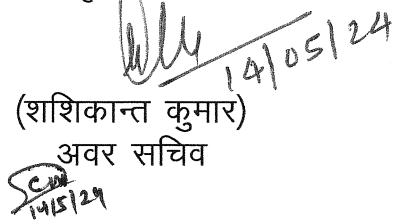 14/05/24
(शशिकान्त कुमार)
अवर सचिव
14/5/24